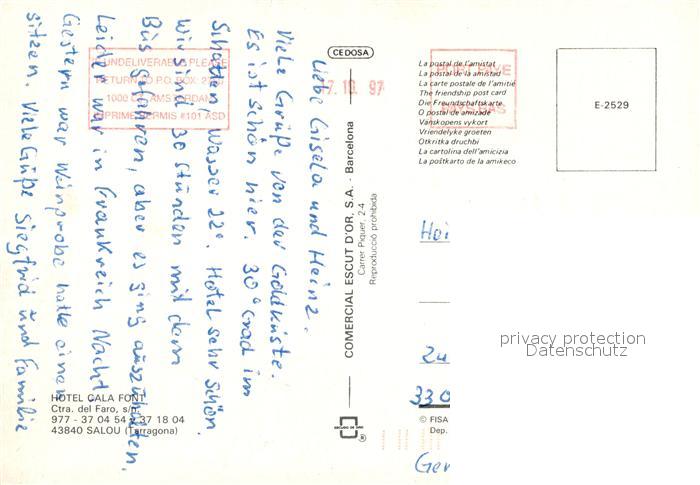 Liebe Gisela und Heinz.
Viele Grüße von der Goldküste.
Es ist schön hier. 30° Grad im
Schatten, Wasser 22°. Hotel sehr schön.
Wir sind 30 Stunden mit dem
Bus gefahren, aber es ging auszuhalten.
Leider war in Frankreich Nacht.
Gestern war Weinprobe hatte einen
sitzen. Viele Grüße Siegfrid und Familie
UNDELIVERABLE PLEASE
RETURN TO P.O. BOX:
1000 AMSTERDAM
PRIME PERMIS #101 ASD
HOTEL CALA FONT
Ctra. del Faro, s/n
977 - 37 04 54 - 37 18 04
43840 SALOU (Tarragona)
CEDOSA
COMERCIAL ESCUT D'OR, S.A. - Barcelona
Carrer Piquer, 2-4
Reproducció prohibida
ESCUDO DE ORO
®
7. 10. 97
PORT PAYÉ
PAYS-BAS
La postal de l'amistat
La postal de la amistad
La carte postale de l'amitié
The friendship post card
Die Freundschaftskarte
O postal de amizade
Vanskopens vykort
Vriendelyke groeten
Otkritka druchbi
La cartolina dell'amicizia
La poŝtkarto de la amikeco
E-2529
Hei
Zu
330
© FISA
Dep.
Ger
privacy protection
Datenschutz